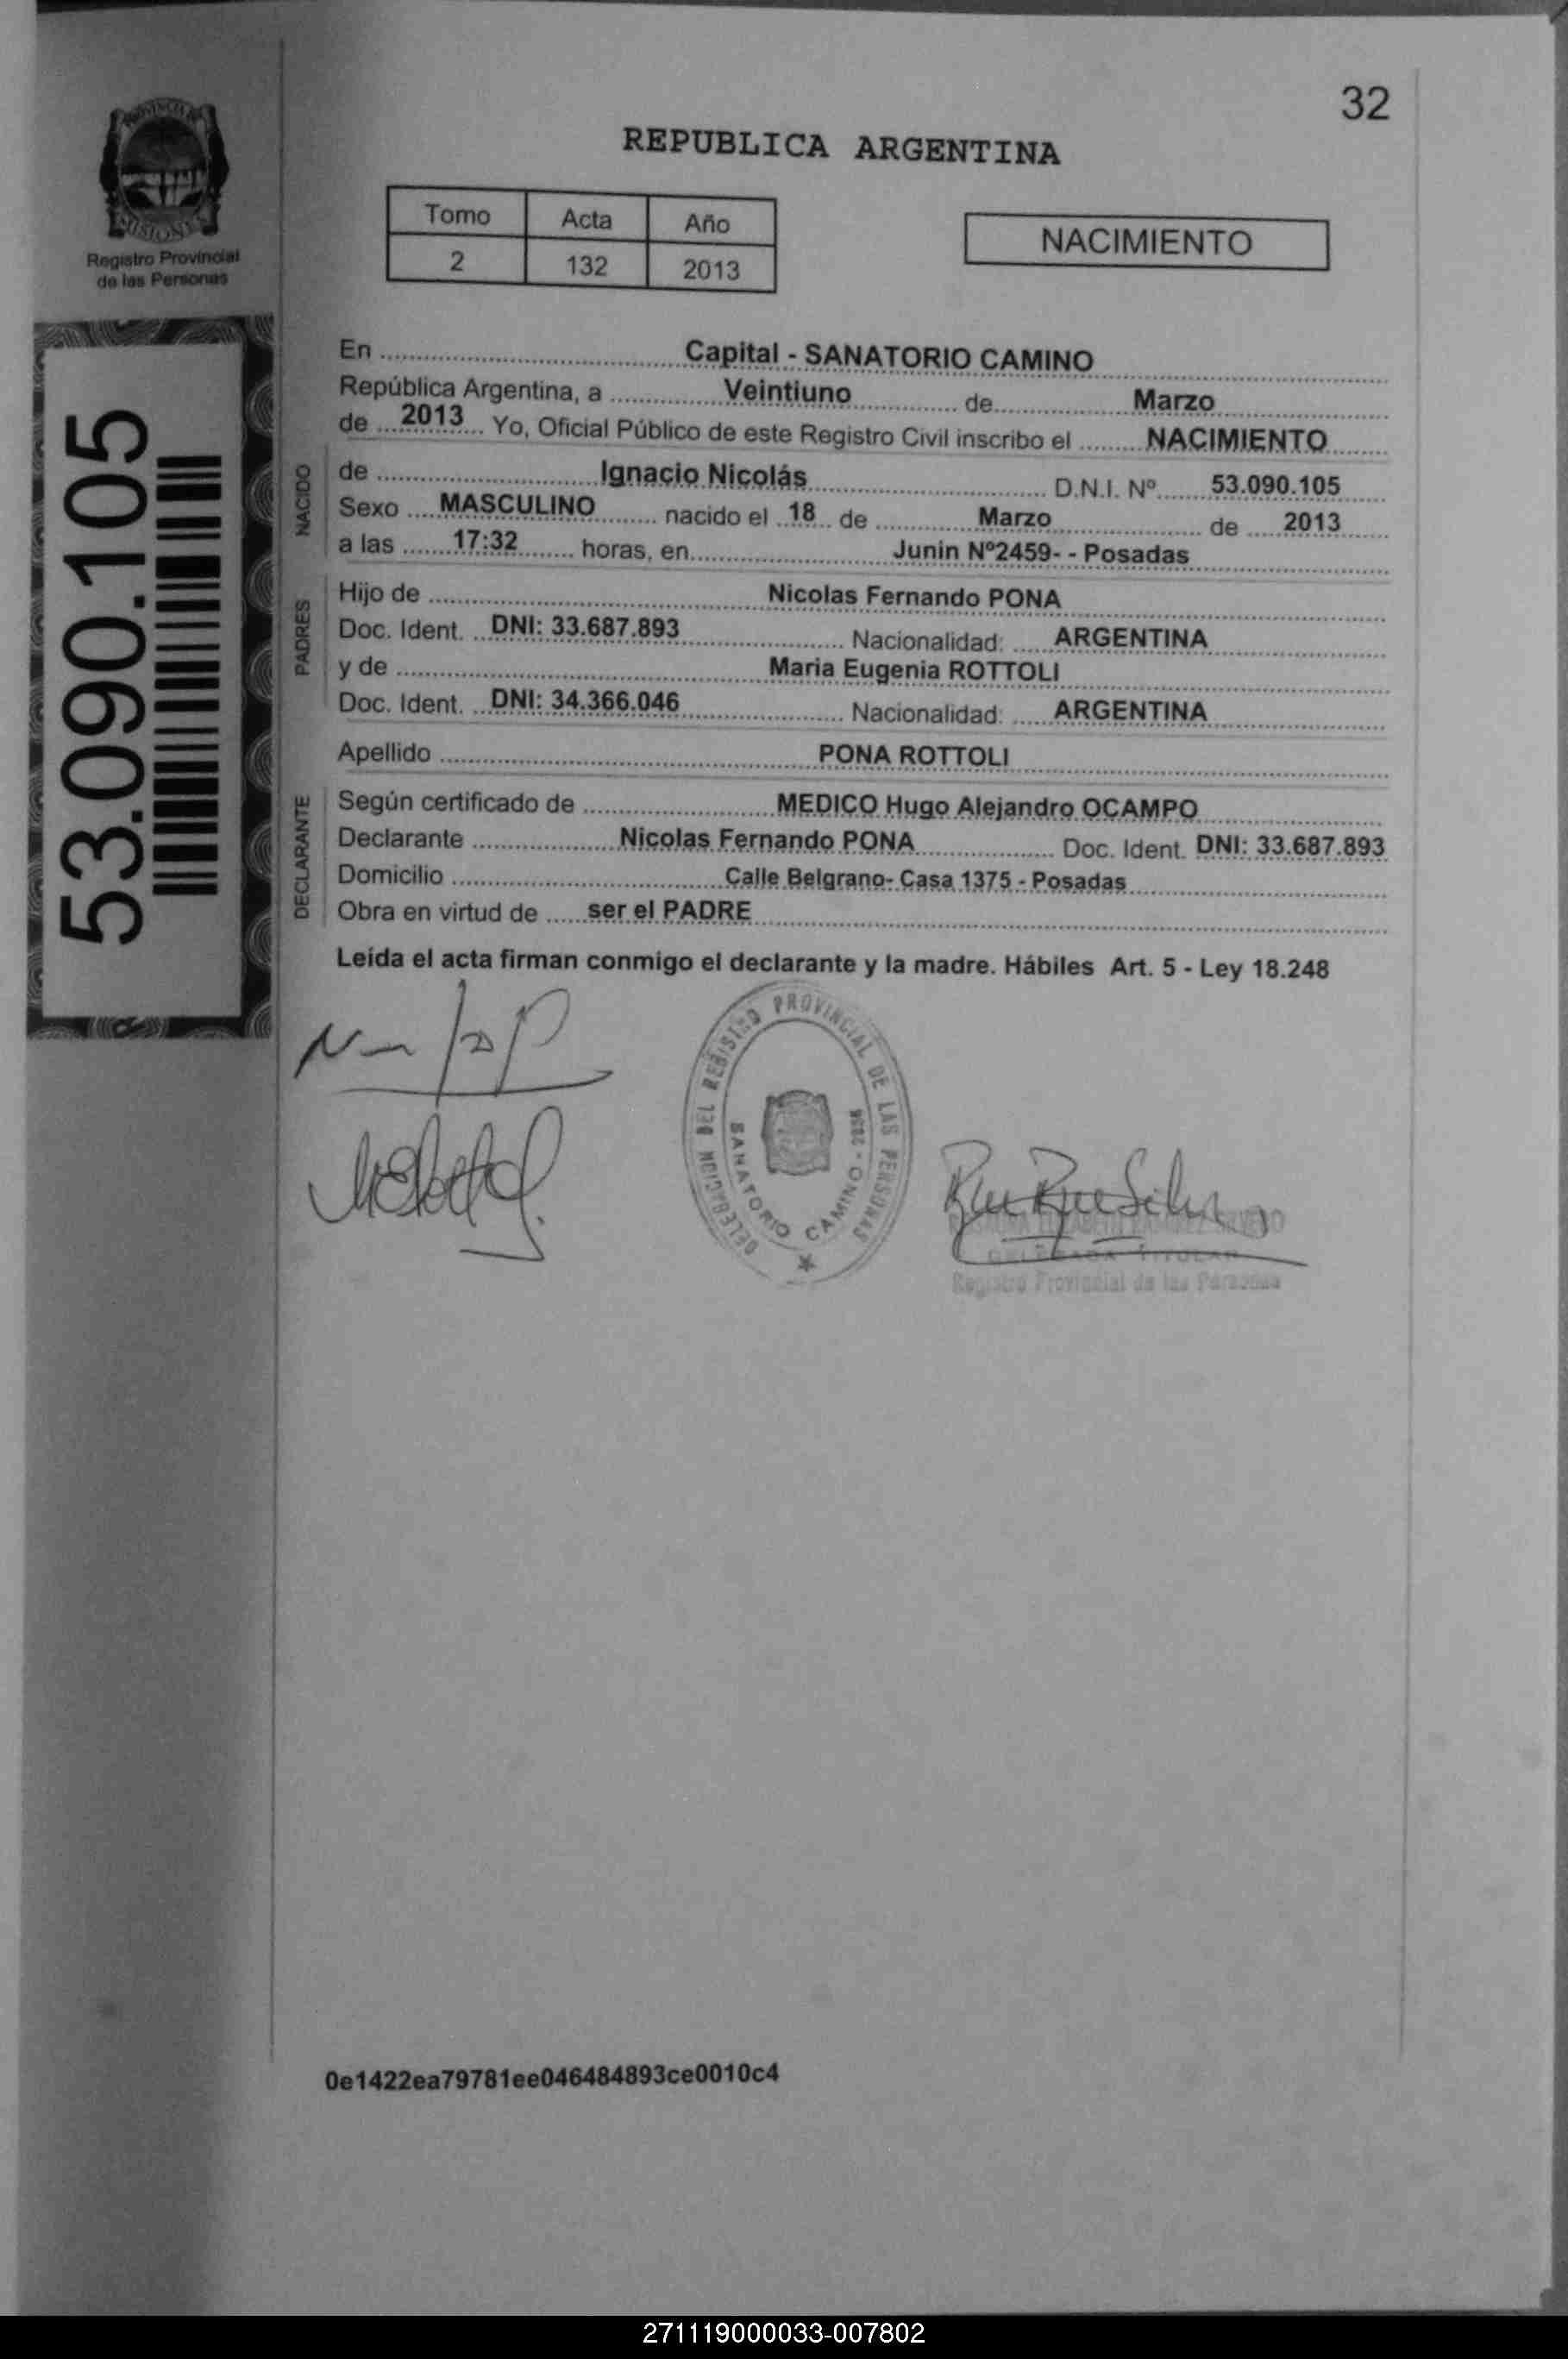 32
PROVINCIA DE
MISIONES
Registro Provincial
de las Personas
REPUBLICA ARGENTINA
Tomo Acta Año
2 132 2013
NACIMIENTO
53.090.105
En Capital - SANATORIO CAMINO
República Argentina, a Veintiuno de Marzo
de 2013 Yo, Oficial Público de este Registro Civil inscribo el NACIMIENTO
NACIDO
de Ignacio Nicolás D.N.I. Nº 53.090.105
Sexo MASCULINO nacido el 18 de Marzo de 2013
a las 17:32 horas, en Junin Nº2459- - Posadas
PADRES
Hijo de Nicolas Fernando PONA
Doc. Ident. DNI: 33.687.893 Nacionalidad: ARGENTINA
y de Maria Eugenia ROTTOLI
Doc. Ident. DNI: 34.366.046 Nacionalidad: ARGENTINA
Apellido PONA ROTTOLI
DECLARANTE
Según certificado de MEDICO Hugo Alejandro OCAMPO
Declarante Nicolas Fernando PONA Doc. Ident. DNI: 33.687.893
Domicilio Calle Belgrano- Casa 1375 - Posadas
Obra en virtud de ser el PADRE
Leída el acta firman conmigo el declarante y la madre. Hábiles Art. 5 - Ley 18.248
DELEGACION DEL REGISTRO PROVINCIAL DE LAS PERSONAS
SANATORIO CAMINO
DELEGADA TITULAR
Registro Provincial de las Personas
0e1422ea79781ee046484893ce0010c4
271119000033-007802